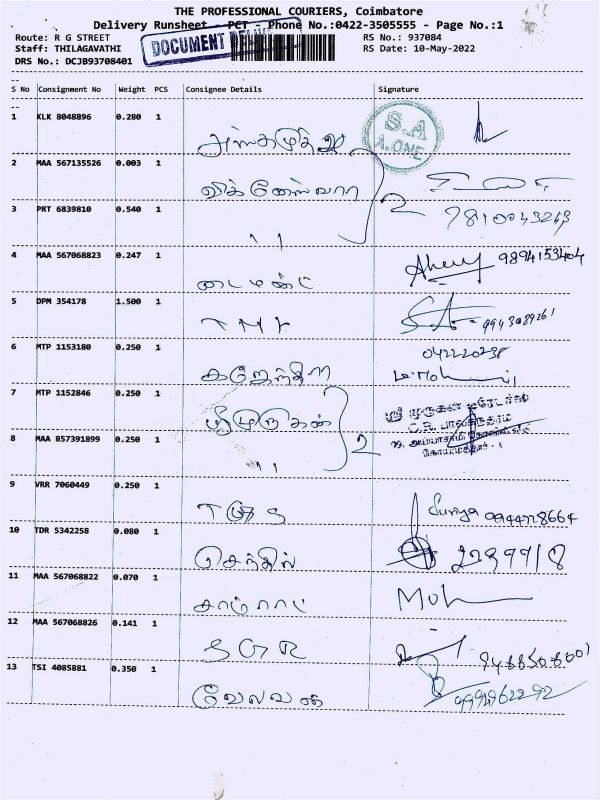 THE PROFESSIONAL COURIERS, Coimbatore
Delivery Runsheet - PCT - Phone No.:0422-3505555 - Page No.:1
Route: R G STREET RS No.: 937084
Staff: THILAGAVATHI DOCUMENT RS Date: 10-May-2022
DRS No.: DCJB93708401
S No Consignment No Weight PCS Consignee Details Signature
1 KLK 8048896 0.280 1
S.A
A.ONE
2 MAA 567135526 0.003 1 விக்னேஸ்வரா
3 PRT 6839810 0.540 1 " 2 7810043243
4 MAA 567068823 0.247 1 டைமண்ட் 9894153404
5 DPM 354178 1.500 1 9943089261
6 MTP 1153180 0.250 1 கஜேந்திரா
7 MTP 1152846 0.250 1 ஸ்ரீமுருகன் ஸ்ரீ முருகன் டிரேடர்ஸ்
8 MAA 857391899 0.250 1 " 2
கோயமுத்தூர் - 1
9 VRR 7060449 0.250 1 Suriya
10 TDR 5342258 0.080 1 செந்தில்
11 MAA 567068822 0.070 1 சாம்ராட்
12 MAA 567068826 0.141 1 SGR
13 TSI 4085881 0.350 1 வேலவன்